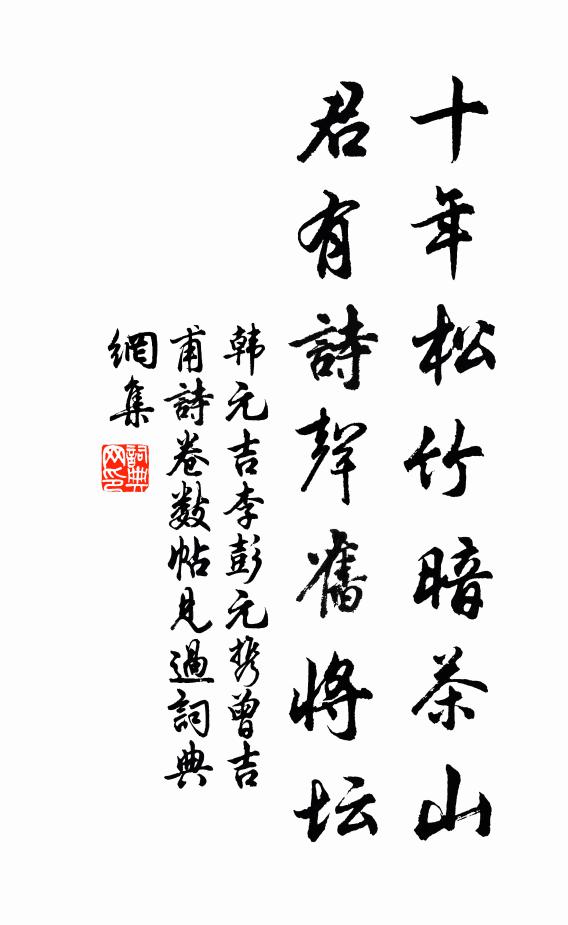 十年松竹暗茶山
君有詩聲舊將坛
韩元吉李彭元携曾吉
甫詩卷数帖見過詞典
網集
詞典
网印